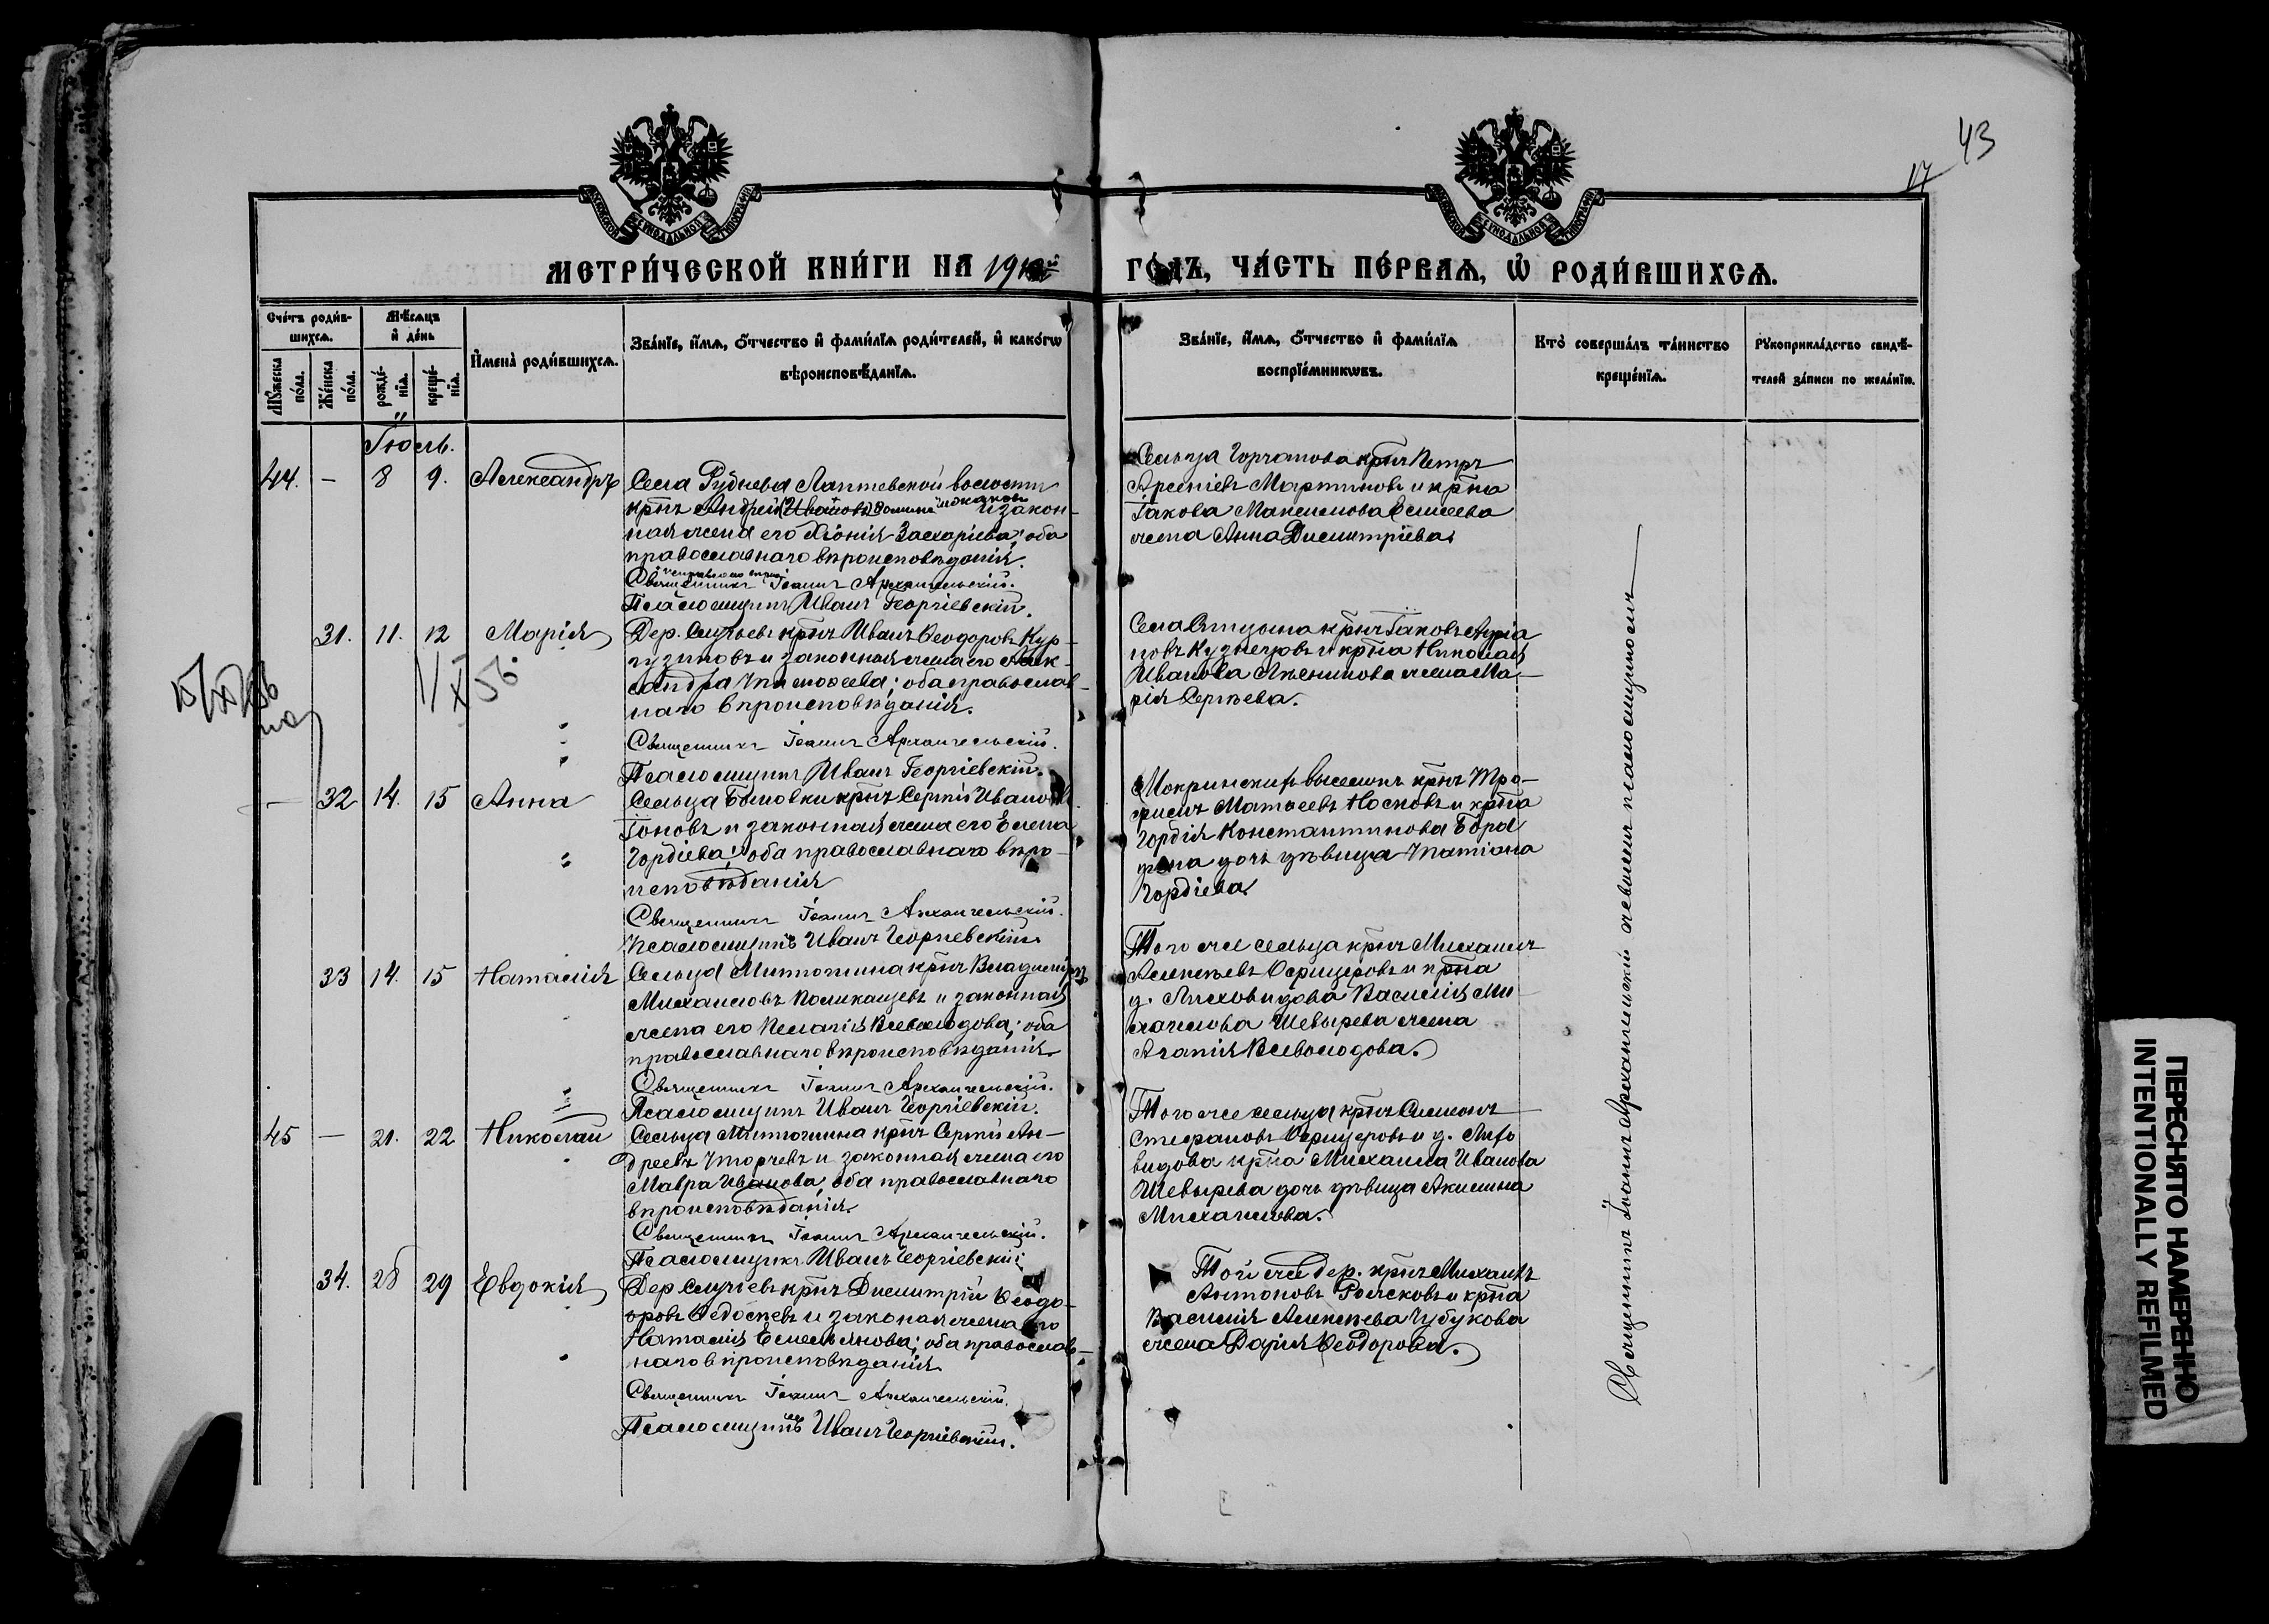 43
17
МЕТРИ́ЧЕСКОЙ КНИ́ГИ НА 191
ГО́ДЪ, ЧА́СТЬ ПЕ́РВАѦ, Ѡ҆ РОДИ́ВШИХСѦ.
Сче́тъ роди́в-
шихсѧ.
Мꙋ́жеска по́ла.
Же́нска по́ла.
Мѣ́сѧцъ
и҆ де́нь
рожде́-
нїѧ.
креще́-
нїѧ.
И҆мена̀ роди́вшихсѧ.
Зва́нїе, и҆́мѧ, ѻ҆́тчество и҆ фами́лїѧ роди́телей, и҆ како́гѡ
вѣроисповѣ́данїѧ.
Зва́нїе, и҆́мѧ, ѻ҆́тчество и҆ фами́лїѧ
воспрїе́мникѡвъ.
Кто̀ соверша́лъ та́инство
креще́нїѧ.
Рꙋкоприкла́дство свидѣ́-
телей за́писи по жела́нїю.
Іюль.
44. — 8 9. Александръ
Села Руднева Лаптевской волости
крнъ Андрей Ивановъ и закон-
ная жена его Хіонія Захаріева; оба
православнаго вѣроисповѣданія.
Священникъ Іоаннъ Архангельскій.
Псаломщикъ Иванъ Георгіевскій.
Сельца Торчанова крнъ Петръ
Арсеніевъ Мартиновъ и крна
Іакова Максимова Елисеева
жена Анна Димитріева.
31. 11. 12 Марія
Дер. крнъ Иванъ Ѳеодоровъ Кур-
гузиковъ и законная жена его Алек-
сандра Тимоѳеева; оба православ-
наго вѣроисповѣданія.
Священникъ Іоаннъ Архангельскій.
Псаломщикъ Иванъ Георгіевскій.
Села крнъ Іаковъ Адріа
новъ Кузнецовъ и крна Николая
Иванова жена Ма-
рія Сергѣева.
1/X 56
— 32 14. 15 Анна
Сельца крнъ Сергій Ивановъ
Іоновъ и законная жена его Елена
Гордіева; оба православнаго вѣро-
исповѣданія
Священникъ Іоаннъ Архангельскій.
Псаломщикъ Иванъ Георгіевскій
Мокринскихъ выселокъ крнъ Тро-
фимъ Матѳеевъ Носковъ и крна
Гордія Константинова
дочь дѣвица Татіана
Гордіева.
33 14. 15 Наталія
Сельца Митюшина крнъ Владиміръ
Михаиловъ и законная
жена его Пелагія Всеволодова; оба
православнаго вѣроисповѣданія.
Священникъ Іоаннъ Архангельскій.
Псаломщикъ Иванъ Георгіевскій.
Того же сельца крнъ Михаилъ
Алексѣевъ Офицеровъ и крна
д. Лиховидова Василія Ми-
хаилова Шевырева жена
Агапія Всеволодова.
45 — 21. 22 Николай
Сельца Митюшина крнъ Сергій Ан-
дреевъ и законная жена его
Мавра Иванова, оба православнаго
вѣроисповѣданія.
Священникъ Іоаннъ Архангельскій.
Псаломщикъ Иванъ Георгіевскій.
Того же сельца крнъ Симеонъ
Стефановъ Офицеровъ и д. Лихо
видова крна Михаила Иванова
Шевырева дочь дѣвица Акилина
Михаилова.
34. 28 29 Евдокія
Дер. крнъ Димитрій Ѳеодо-
ровъ Ѳедосѣевъ и законная жена его
Наталія Емельянова; оба православ-
наго вѣроисповѣданія
Священникъ Іоаннъ Архангельскій.
Псаломщикъ Иванъ Георгіевскій.
Той же дер. крнъ Михаилъ
Антоновъ и крна
Василія Алексѣева Чубукова
жена Дарія Ѳеодорова.
Священникъ Іоаннъ Архангельскій псаломщикомъ
ПЕРЕСНЯТО НАМЕРЕННО
INTENTIONALLY REFILMED